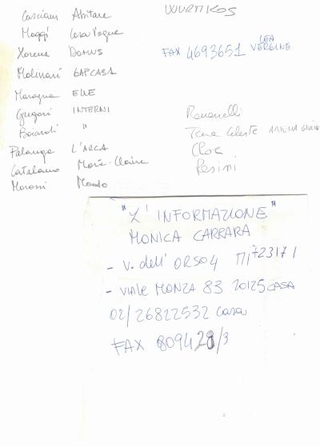 Casciani Abitare
Maggi Casa Vogue
Domus
Molinari GAPCASA
ELLE
Gregori INTERNI
"
Palange L'ARCA
Catalano Marie-Claire
Morossi Mondo
FAX 4693651 LEA
VERGINE
Romanelli
Tena Celeste
Clac
Pesini
"L'INFORMAZIONE"
MONICA CARRARA
- V. dell' ORSO 4 MI 723171
- VIALE MONZA 83 20125 CASA
02/26822532 casa
FAX 809428/3